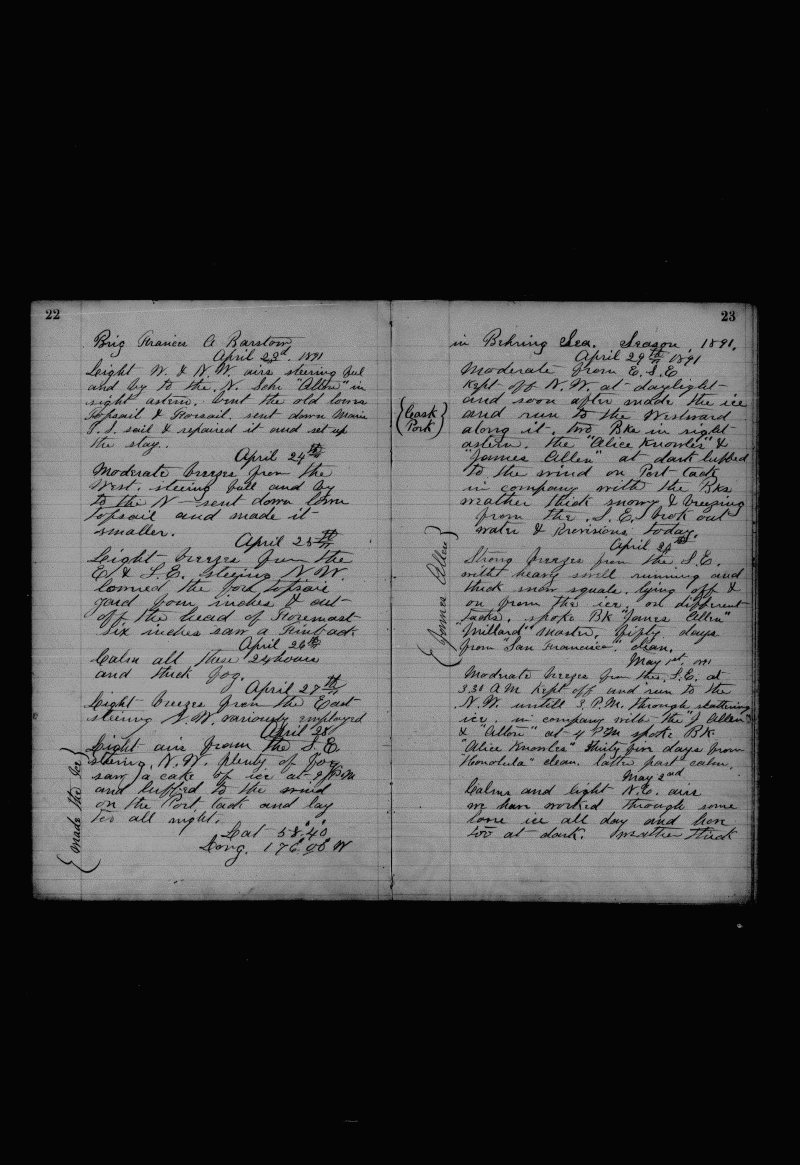 22
Brig Frances A Barstow
April 23d. 1891
Light W. & N.W. airs steering full
and by to the N. Schr "Alton" in
sight astern. bent the old lower
topsail & Foresail. sent down Main
T. S. sail & repaired it and set up
the stay.
April 24th
Moderate breezes from the
West. steering full and by
to the N— sent down lower
topsail and made it
smaller.
April 25th
Light breezes from the
E. & S.E. steering N.W.
lowered the fore topsail
yard four inches & cut
off the head of Foremast
six inches saw a Finback
April 26th
Calm all these 24 hours
and thick fog.
April 27th
Light breezes from the East
steering N.W. variously employed
April 28
Light airs from the S.E.
steering N.W. plenty of Fog
saw a cake of ice at 8 P.M
and luffed to the wind
on the Port tack and lay
too all night.
Lat 58° 40'
Long. 176° 06' W
made the Ice
23
in Behring Sea. Season, 1891.
April 29th 1891
Moderate from E.S.E
kept off N.W. at daylight
and soon after made the ice
and run to the Westward
along it. two Bks in sight
astern. the "Alice Knowles" &
"James Allen" at dark luffed
to the wind on Port tack
in company with the Bks
weather thick snowy & breezing
from the S.E. brok out
water & Provisions today.
Cask
Pork
April
Strong breezes from the S.E.
with heavy swell running and
thick snow squals. lying off &
on from the ice, on different
tacks. spoke Bk "James Allen"
"Millard" Master. fifty days
from "San Francisco". clean.
James Allen
May 1st, 1891
Moderate breezes from the S.E. at
3.30 A.M kept off and run to the
N.W. untill 3. P.M. through skattering
ice. in company with the "J Allen"
& "Alton" at 4 P.M spoke Bk
"Alice Knowles" thirty five days from
"Honolula" clean. latter part calm.
May 2nd
Calms and light N.E. airs
we have worked through some
lose ice all day and hove
too at dark. weather thick